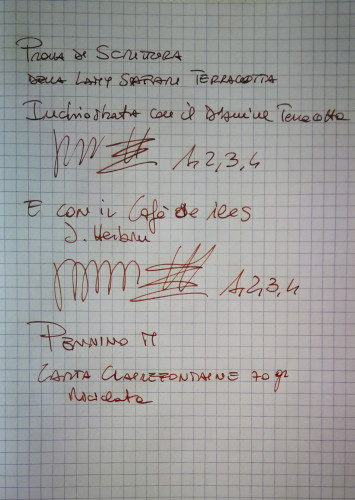 Prova di Scrittura
della Lamy Safari Terracotta
Inchiostrata con il Diamine Terracotta
1, 2, 3, 4
E con il Cafè de iles
J. Herbin
1, 2, 3, 4
Pennino M
Carta Clairefontaine 70 gr
Riciclata